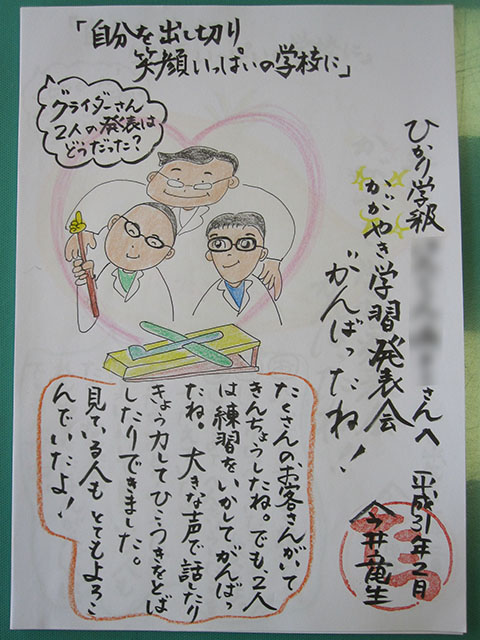 「自分を出し切り
笑顔いっぱいの学校に」
グライダーさん
2人の発表は
どうだった？
ひかり学級
さんへ
かがやき学習発表会
がんばったね！
たくさんのお客さんがいて
きんちょうしたね。でも、2人
は練習をいかしてがんばっ
たね。大きな声で話したり
きょう力してひこうきをとば
したりできました。
見ている人もとてもよろこ
んでいたよ！
平成31年2月
今井竜生